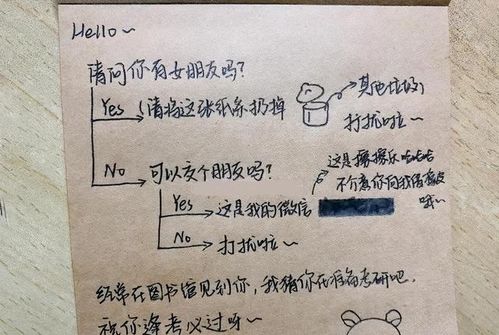 Hello~
请问你有女朋友吗?
Yes 请将这张纸条扔掉
其他垃圾
打扰啦~
No 可以交个朋友吗?
这是擦擦乐哈哈哈
不介意你问我借橡皮
哦~
Yes 这是我的微信
No 打扰啦~
经常在图书馆见到你,我猜你在准备考研吧,
祝你逢考必过呀~